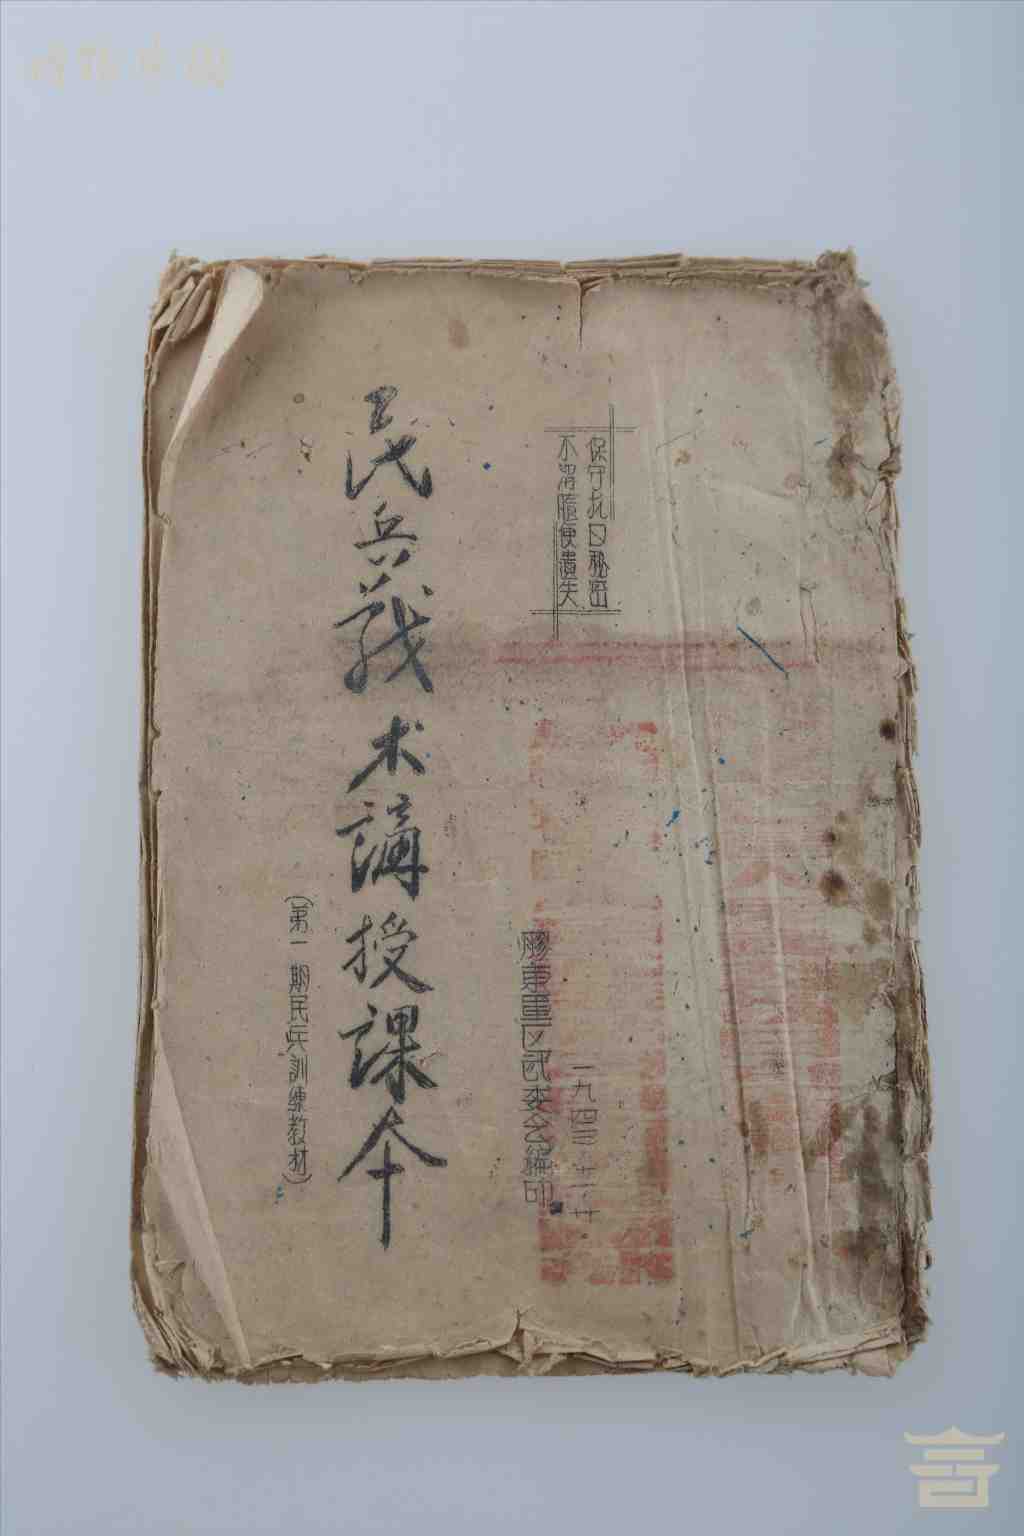 保守抗日秘密
不得隨便遺失
一九四三.十一.廿.
膠東軍区武委会編印
民兵战术講授課本
(第一期民兵訓練教材)